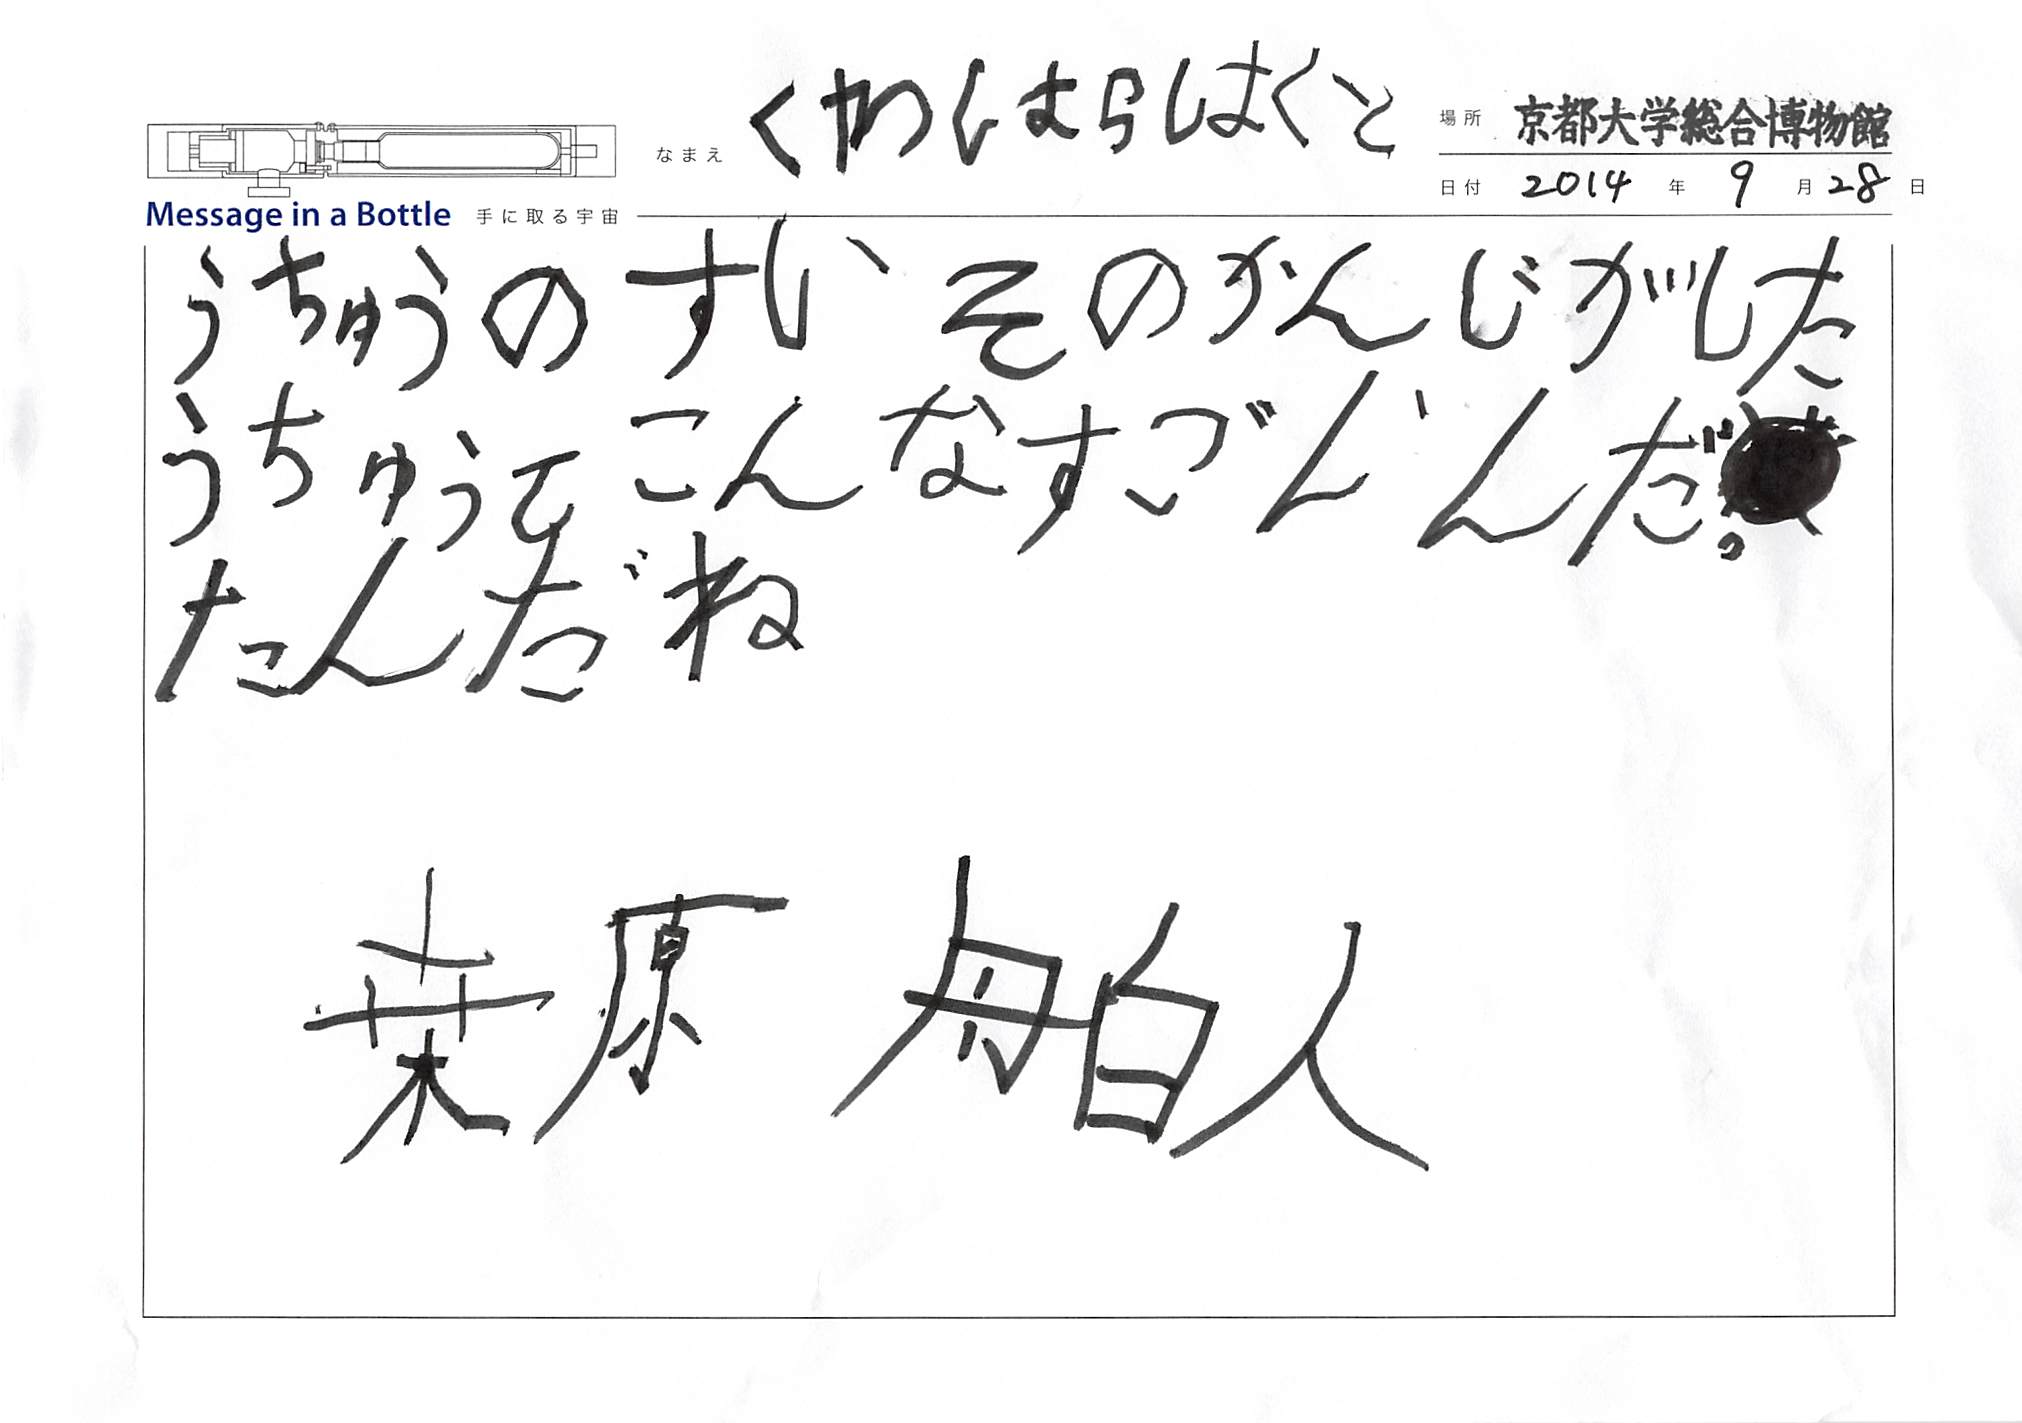 なまえ くわはらはくと
場所 京都大学総合博物館
日付 2014 年 9 月 28 日
Message in a Bottle 手に取る宇宙
うちゅうのすいそのかんじがした
うちゅうてこんなすごいんだっ
たんだね
桒原 舶人